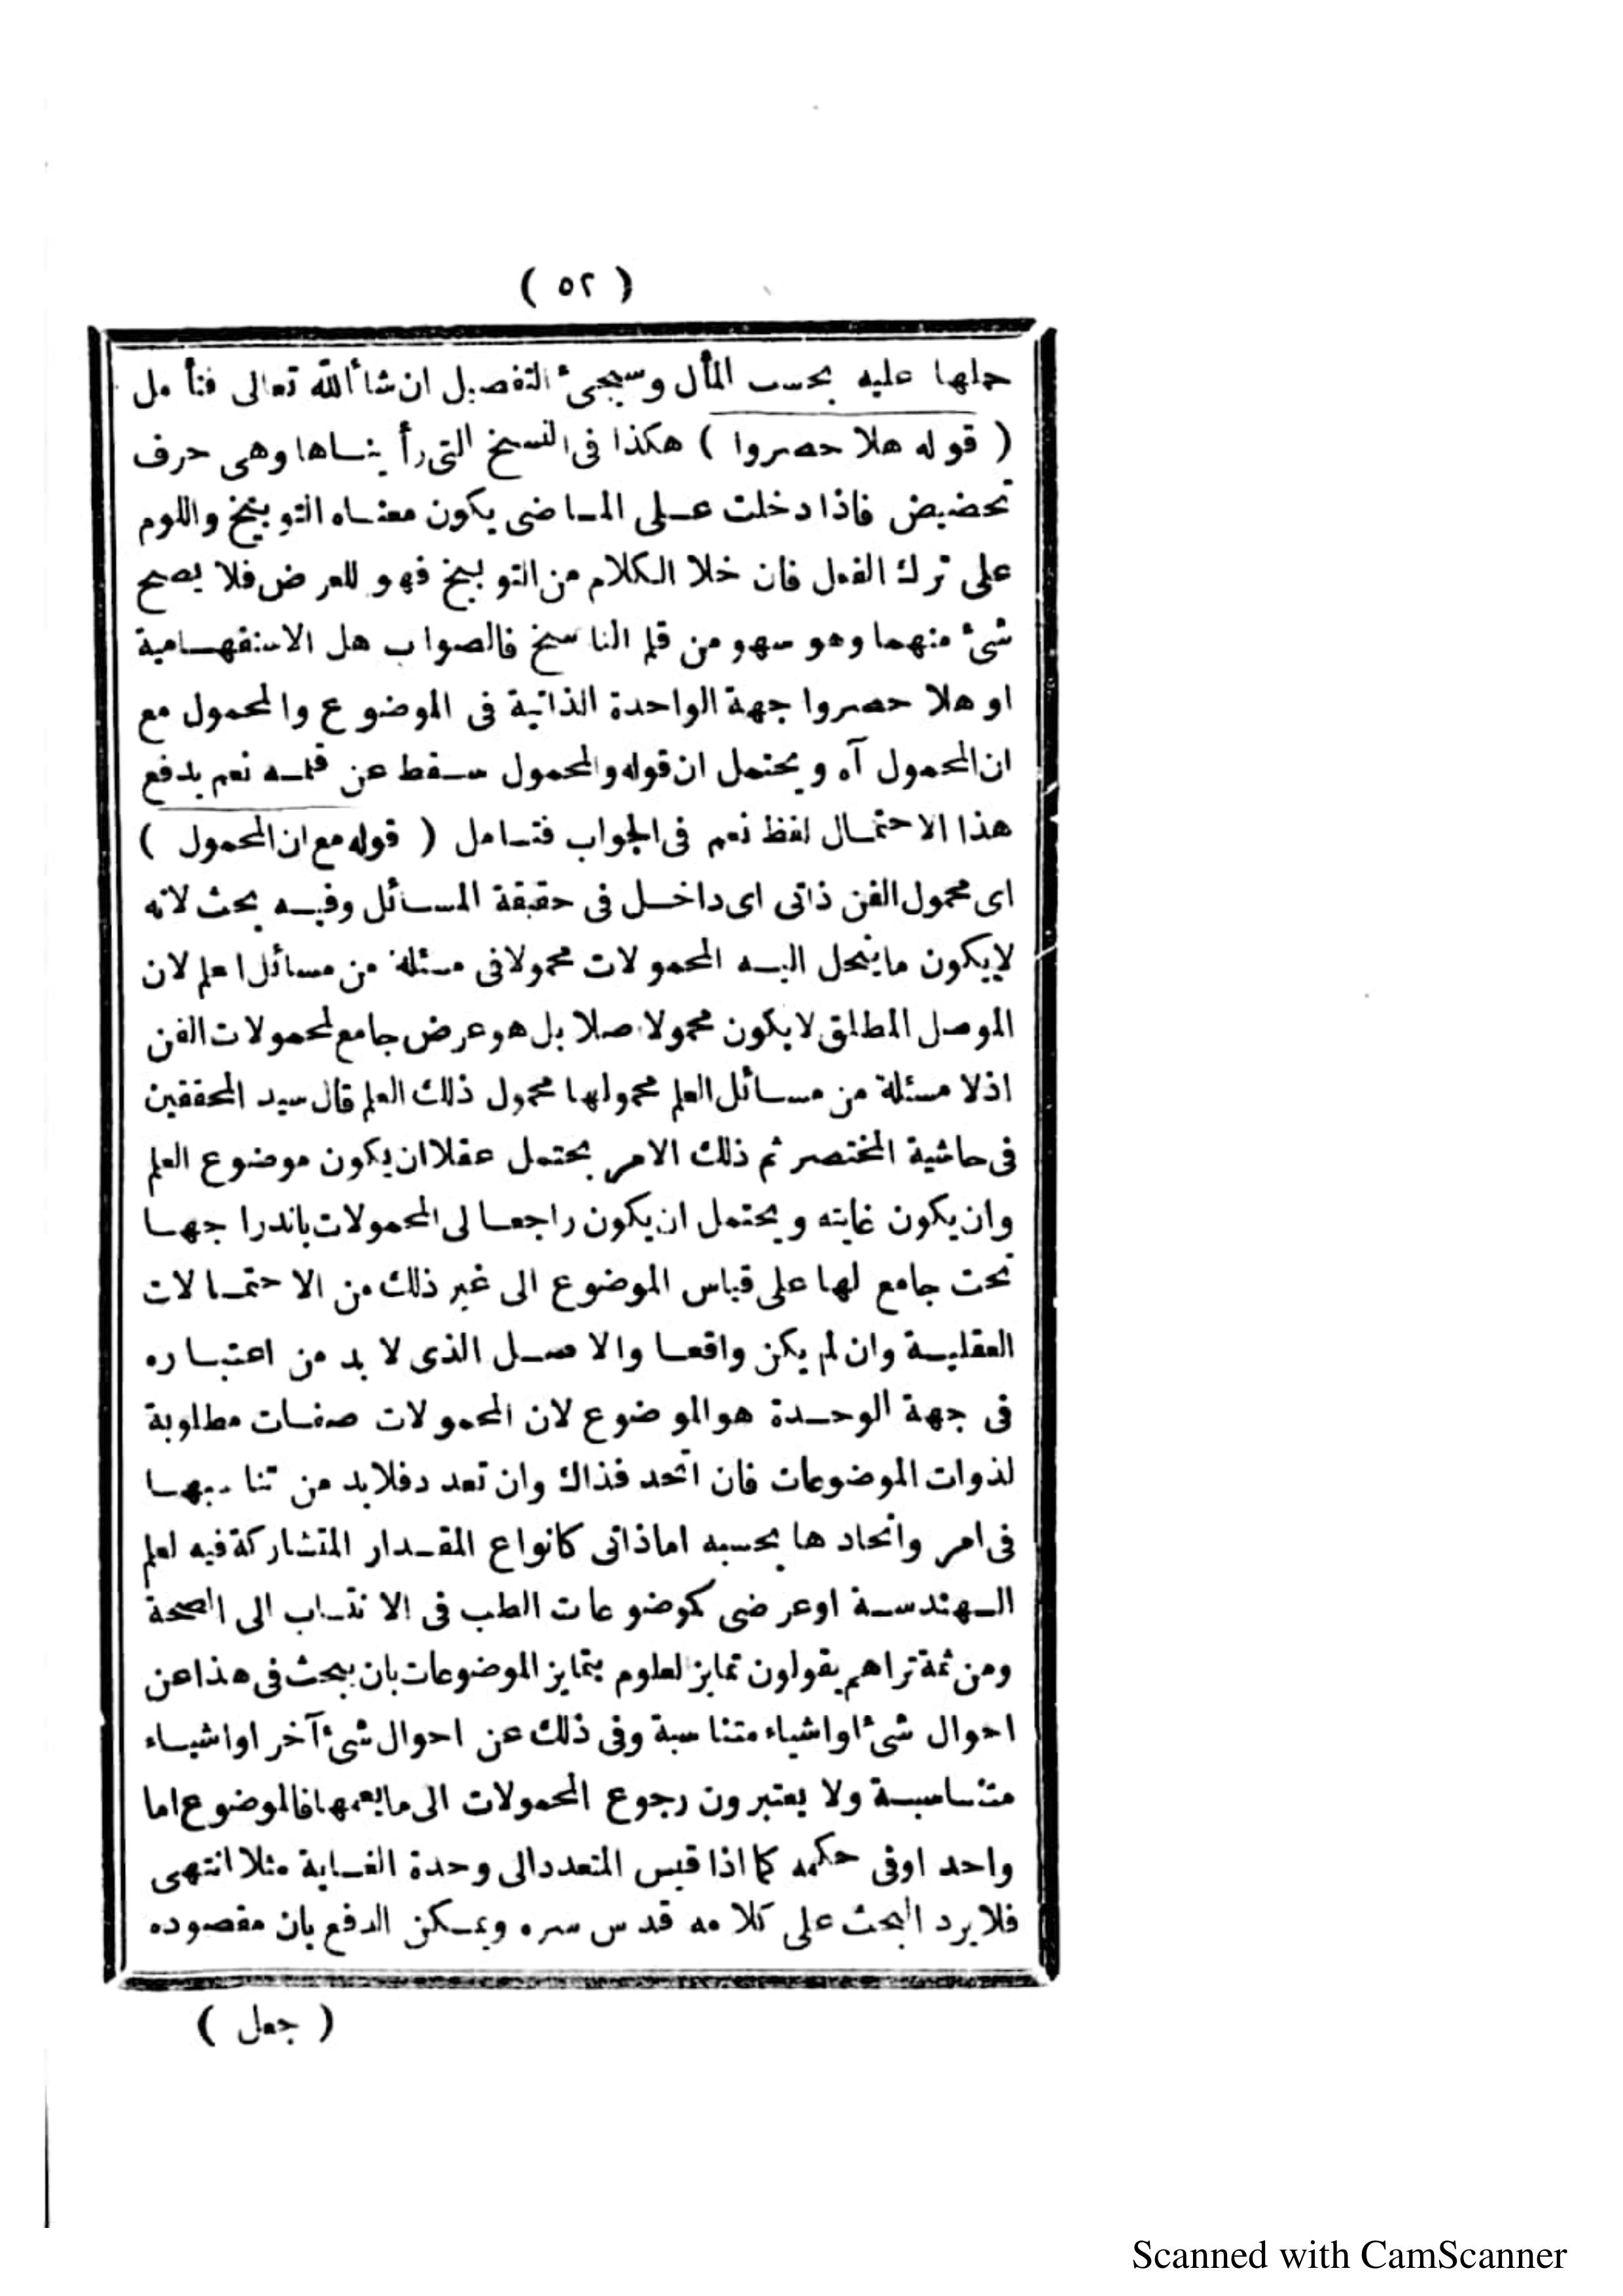 ( ٥٢ )
حملها عليه بحسب المأل وسيجئ التفصيل ان شاألله تعالى فتأمل
( قوله هلا حصروا ) هكذا فى النسخ التى رأيناها وهى حرف
تحضيض فاذا دخلت على الماضى يكون معناه التوبيخ واللوم
على ترك الفعل فان خلا الكلام من التوبيخ فهو للعرض فلا يصح
شئ منهما وهو سهو من قلم الناسخ فالصواب هل الاستفهامية
او هلا حصروا جهة الواحدة الذاتية فى الموضوع والمحمول مع
ان المحمول آه ويحتمل ان قوله والمحمول سقط عن قلمه نعم يدفع
هذا الاحتمال لفظ نعم فى الجواب فتامل ( قوله مع ان المحمول )
اى محمول الفن ذاتى اى داخل فى حقيقة المسائل وفيه بحث لانه
لايكون ماينحل اليه المحمولات محمولا فى مسئلة من مسائل العلم لان
الموصل المطلق لايكون محمولا اصلا بل هو عرض جامع لمحمولات الفن
اذلا مسئلة من مسائل العلم محمولها محمول ذلك العلم قال سيد المحققين
فى حاشية المختصر ثم ذلك الامر يحتمل عقلا ان يكون موضوع العلم
وان يكون غايته ويحتمل ان يكون راجعا الى المحمولات باندراجها
تحت جامع لها على قياس الموضوع الى غير ذلك من الاحتمالات
العقلية وان لم يكن واقعا والاصل الذى لا بد من اعتباره
فى جهة الوحدة هو الموضوع لان المحمولات صفات مطلوبة
لذوات الموضوعات فان اتحد فذاك وان تعدد فلابد من تناسبها
فى امر واتحادها بحسبه اما ذاتى كانواع المقدار المتشاركة فيه لعلم
الهندسة اوعرضى كموضوعات الطب فى الانتساب الى الصحة
ومن ثمة تراهم يقولون تمايز العلوم بتمايز الموضوعات بان يبحث فى هذا عن
احوال شئ او اشياء متناسبة وفى ذلك عن احوال شئ آخر او اشياء
متناسبة ولا يعتبرون رجوع المحمولات الى مايعمها فالموضوع اما
واحد اوفى حكمه كما اذا قيس المتعدد الى وحدة الغاية مثلا انتهى
فلا يرد البحث على كلامه قدس سره ويمكن الدفع بان مقصوده
( جعل )
Scanned with CamScanner